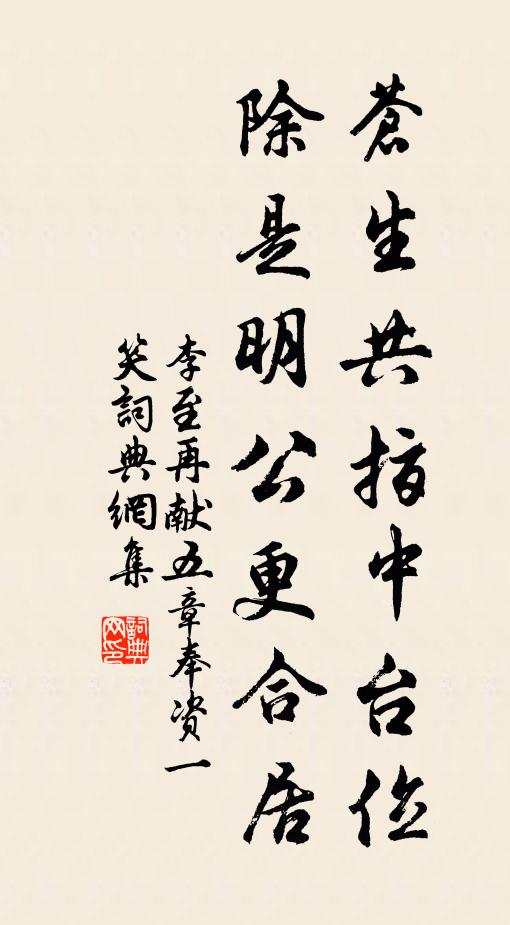 蒼生共指中台位
除是明公更合居
李至再献五章奉资一
笑詞典網集
詞典网印